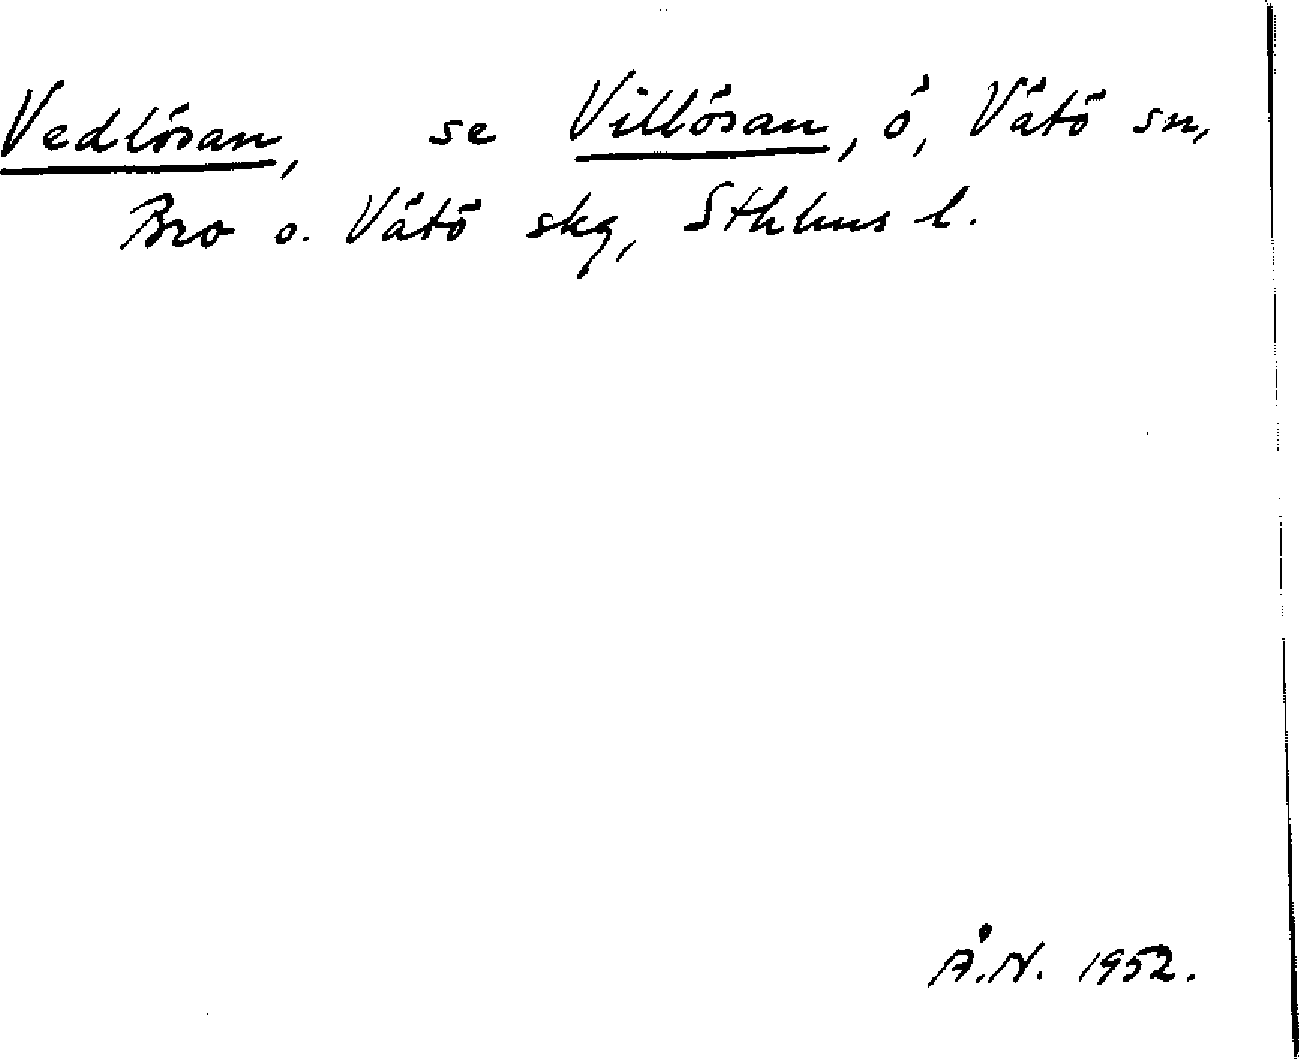 Vedlösan, se Villösan, ö, Vätö sn,
Bro o. Vätö skg, Sthlms l.
Å.N. 1952.